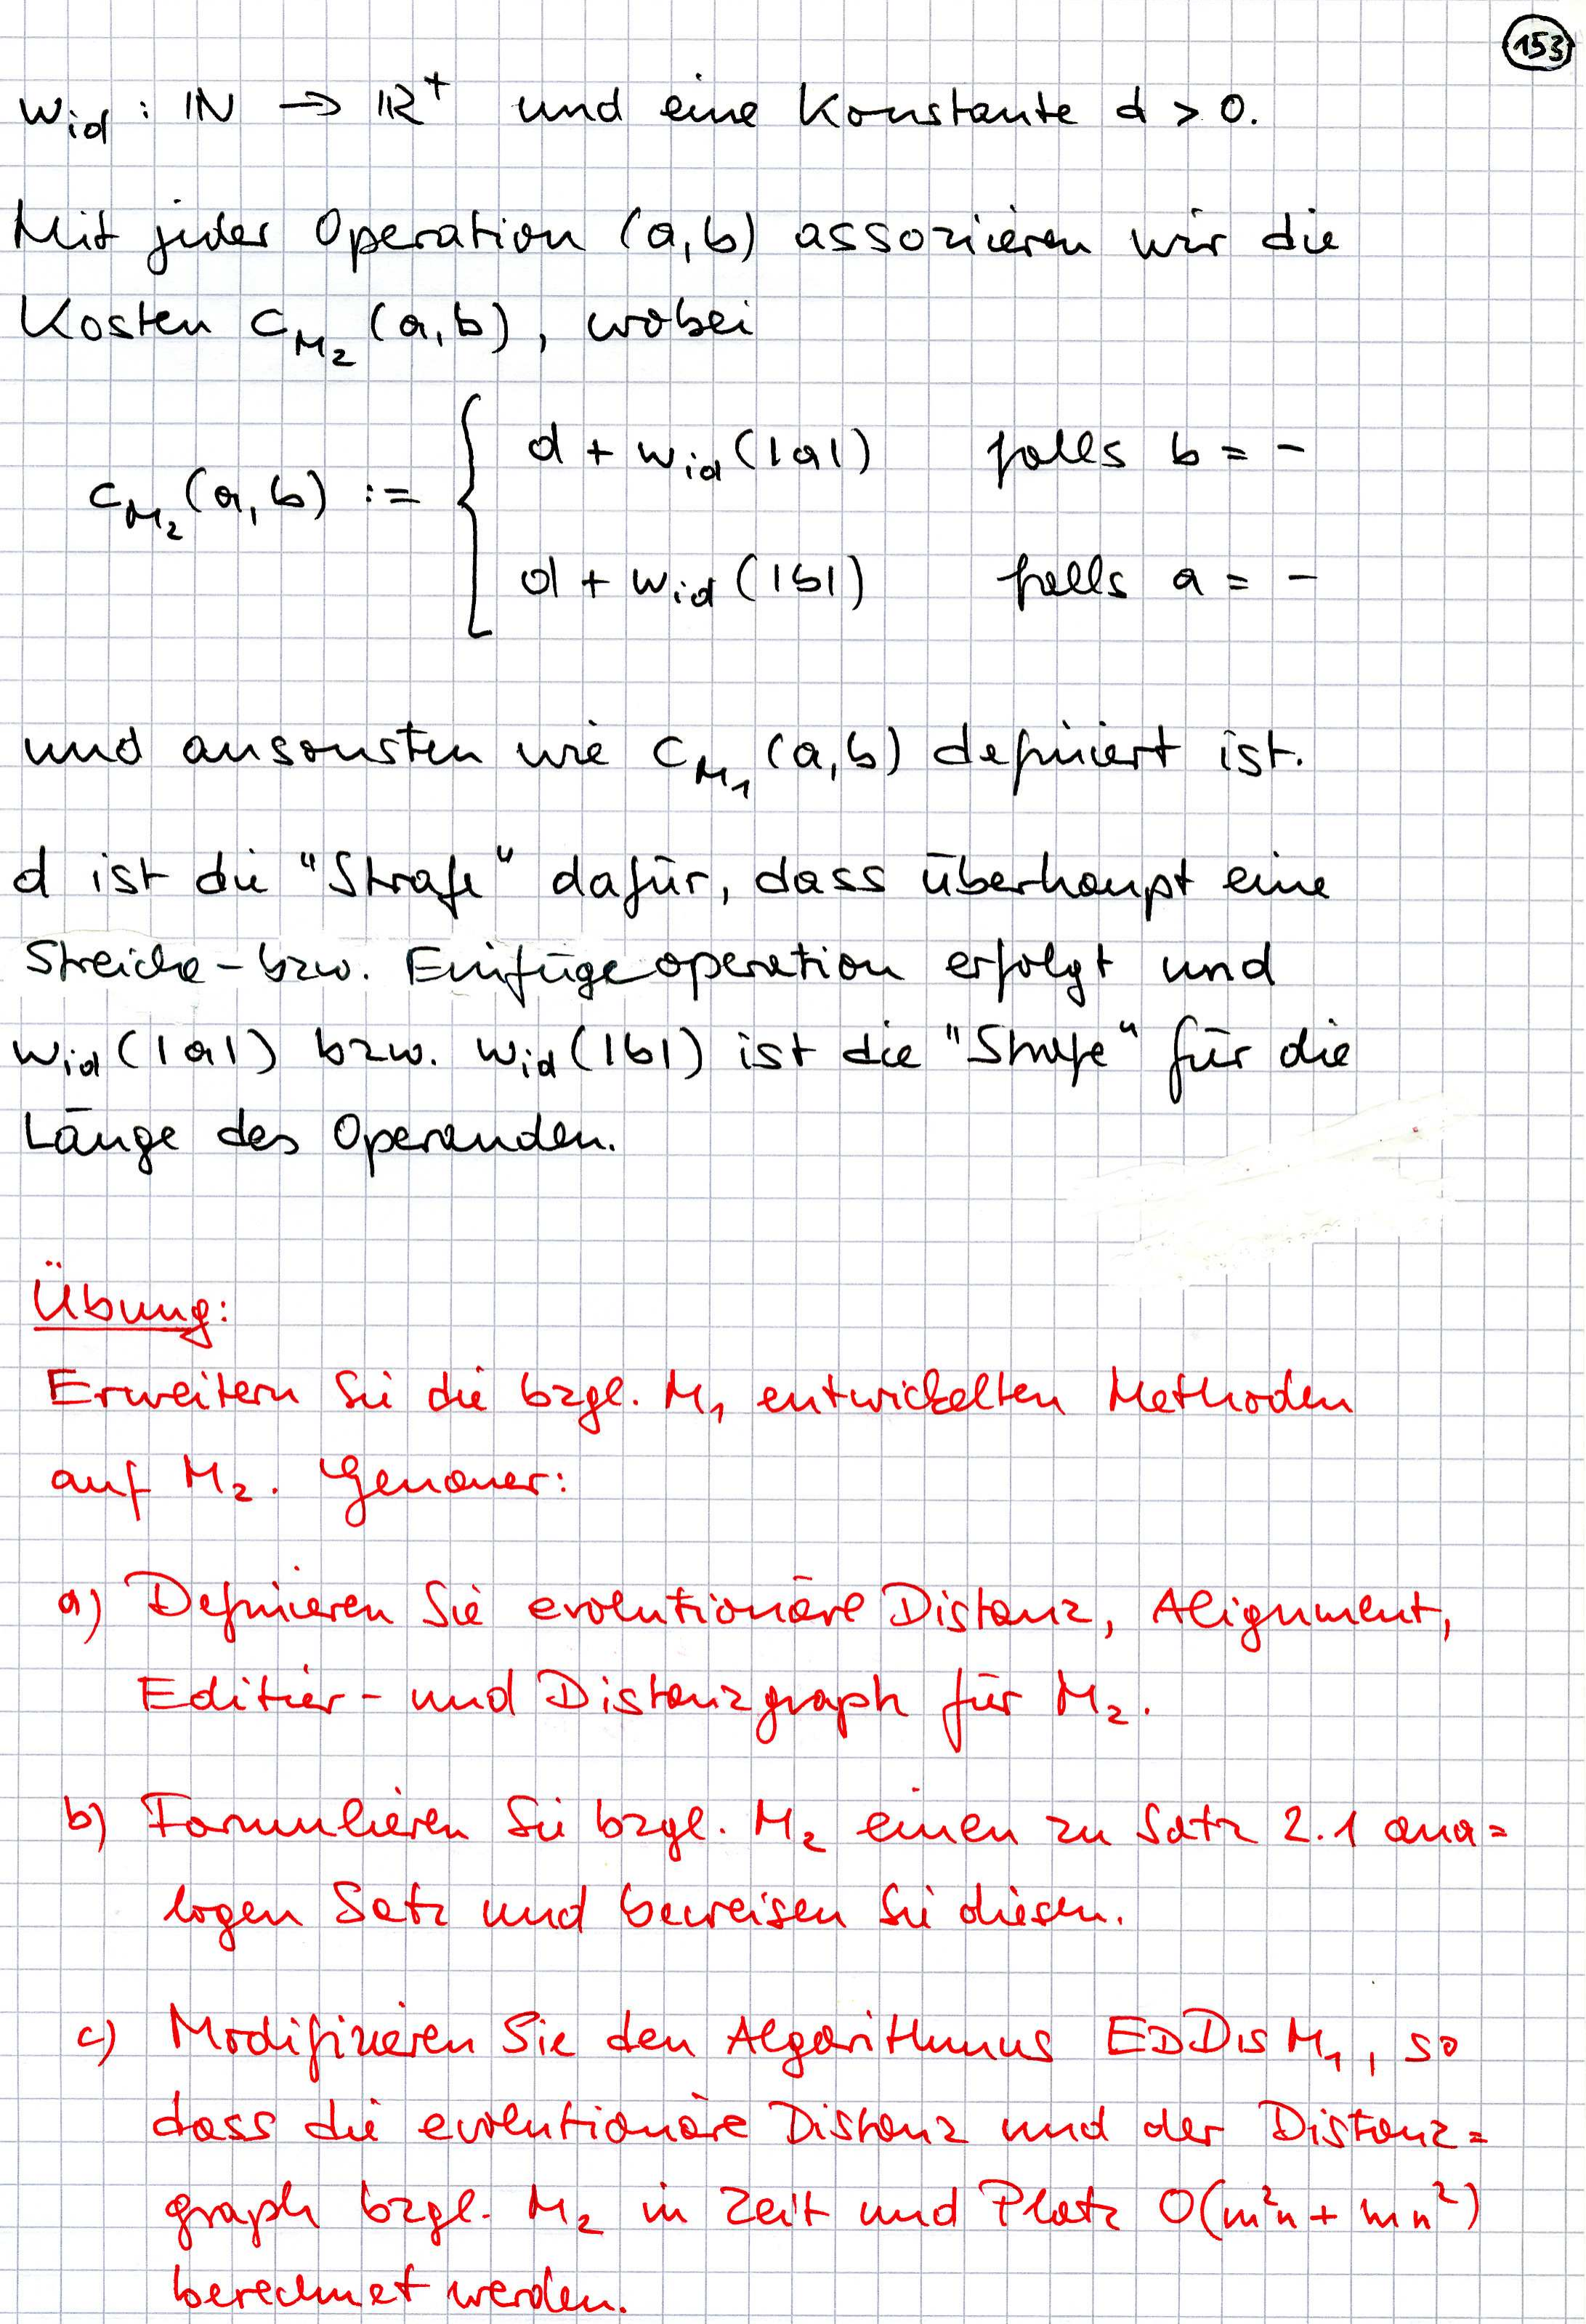 153
w_id : ℕ → ℝ⁺ und eine Konstante d > 0.
Mit jeder Operation (a,b) assoziieren wir die
Kosten c_M₂ (a,b), wobei
d + w_id (|a|) falls b = -
c_M₂ (a,b) := {
d + w_id (|b|) falls a = -
und ansonsten wie c_M₁ (a,b) definiert ist.
d ist die "Strafe" dafür, dass überhaupt eine
Streiche- bzw. Einfügeoperation erfolgt und
w_id (|a|) bzw. w_id (|b|) ist die "Strafe" für die
Länge des Operanden.
Übung:
Erweitern Sie die bzgl. M₁ entwickelten Methoden
auf M₂. Genauer:
a) Definieren Sie evolutionäre Distanz, Alignment,
Editier- und Distanzgraph für M₂.
b) Formulieren Sie bzgl. M₂ einen zu Satz 2.1 ana=
logen Satz und beweisen Sie diesen.
c) Modifizieren Sie den Algorithmus EDDISM₁, so
dass die evolutionäre Distanz und der Distanz=
graph bzgl. M₂ in Zeit und Platz O(m²n + mn²)
berechnet werden.